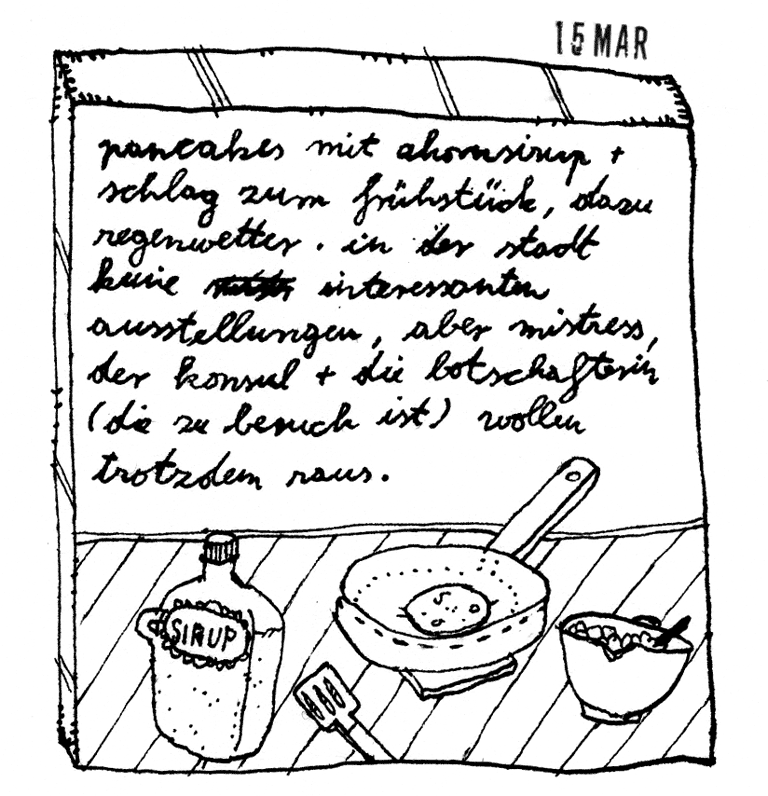 15 MAR
pancakes mit ahornsirup +
schlag zum frühstück, dazu
regenwetter. in der stadt
keine interessanten
ausstellungen, aber mistress,
der konsul + die botschafterin
(die zu besuch ist) wollen
trotzdem raus.
SIRUP